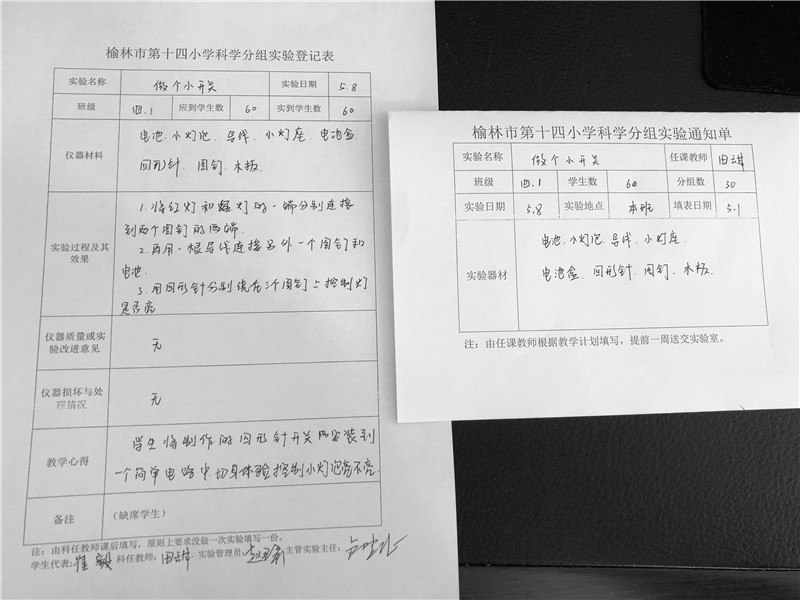 榆林市第十四小学科学分组实验登记表
实验名称 做个小开关 实验日期 5.8
班级 四.1 应到学生数 60 实到学生数 60
仪器材料
电池.小灯泡.导线.小灯座.电池盒.
回形针.图钉.木板.
实验过程及其
效果
1.将红灯和 灯的一端分别连接
到两个图钉的两端.
2.再用一根导线连接另外一个图钉和
电池.
3.用回形针分别绕在三个图钉上控制灯
是否亮
仪器质量或实
验改进意见
无
仪器损坏与处
理情况
无
教学心得
学生将制作的回形针开关 安装到
一个简单电路中切身体验控制小灯泡亮不亮.
备注 (缺席学生)
注:由科任教师课后填写,原则上要求没做一次实验填写一份。
学生代表: 崔毅 科任教师: 实验管理员: 主管实验主任:
榆林市第十四小学科学分组实验通知单
实验名称 做个小开关 任课教师
班级 四.1 学生数 60 分组数 30
实验日期 5.8 实验地点 本班 填表日期 5.1
实验器材
电池.小灯泡.导线.小灯座.
电池盒.回形针.图钉.木板.
注:由任课教师根据教学计划填写,提前一周送交实验室。